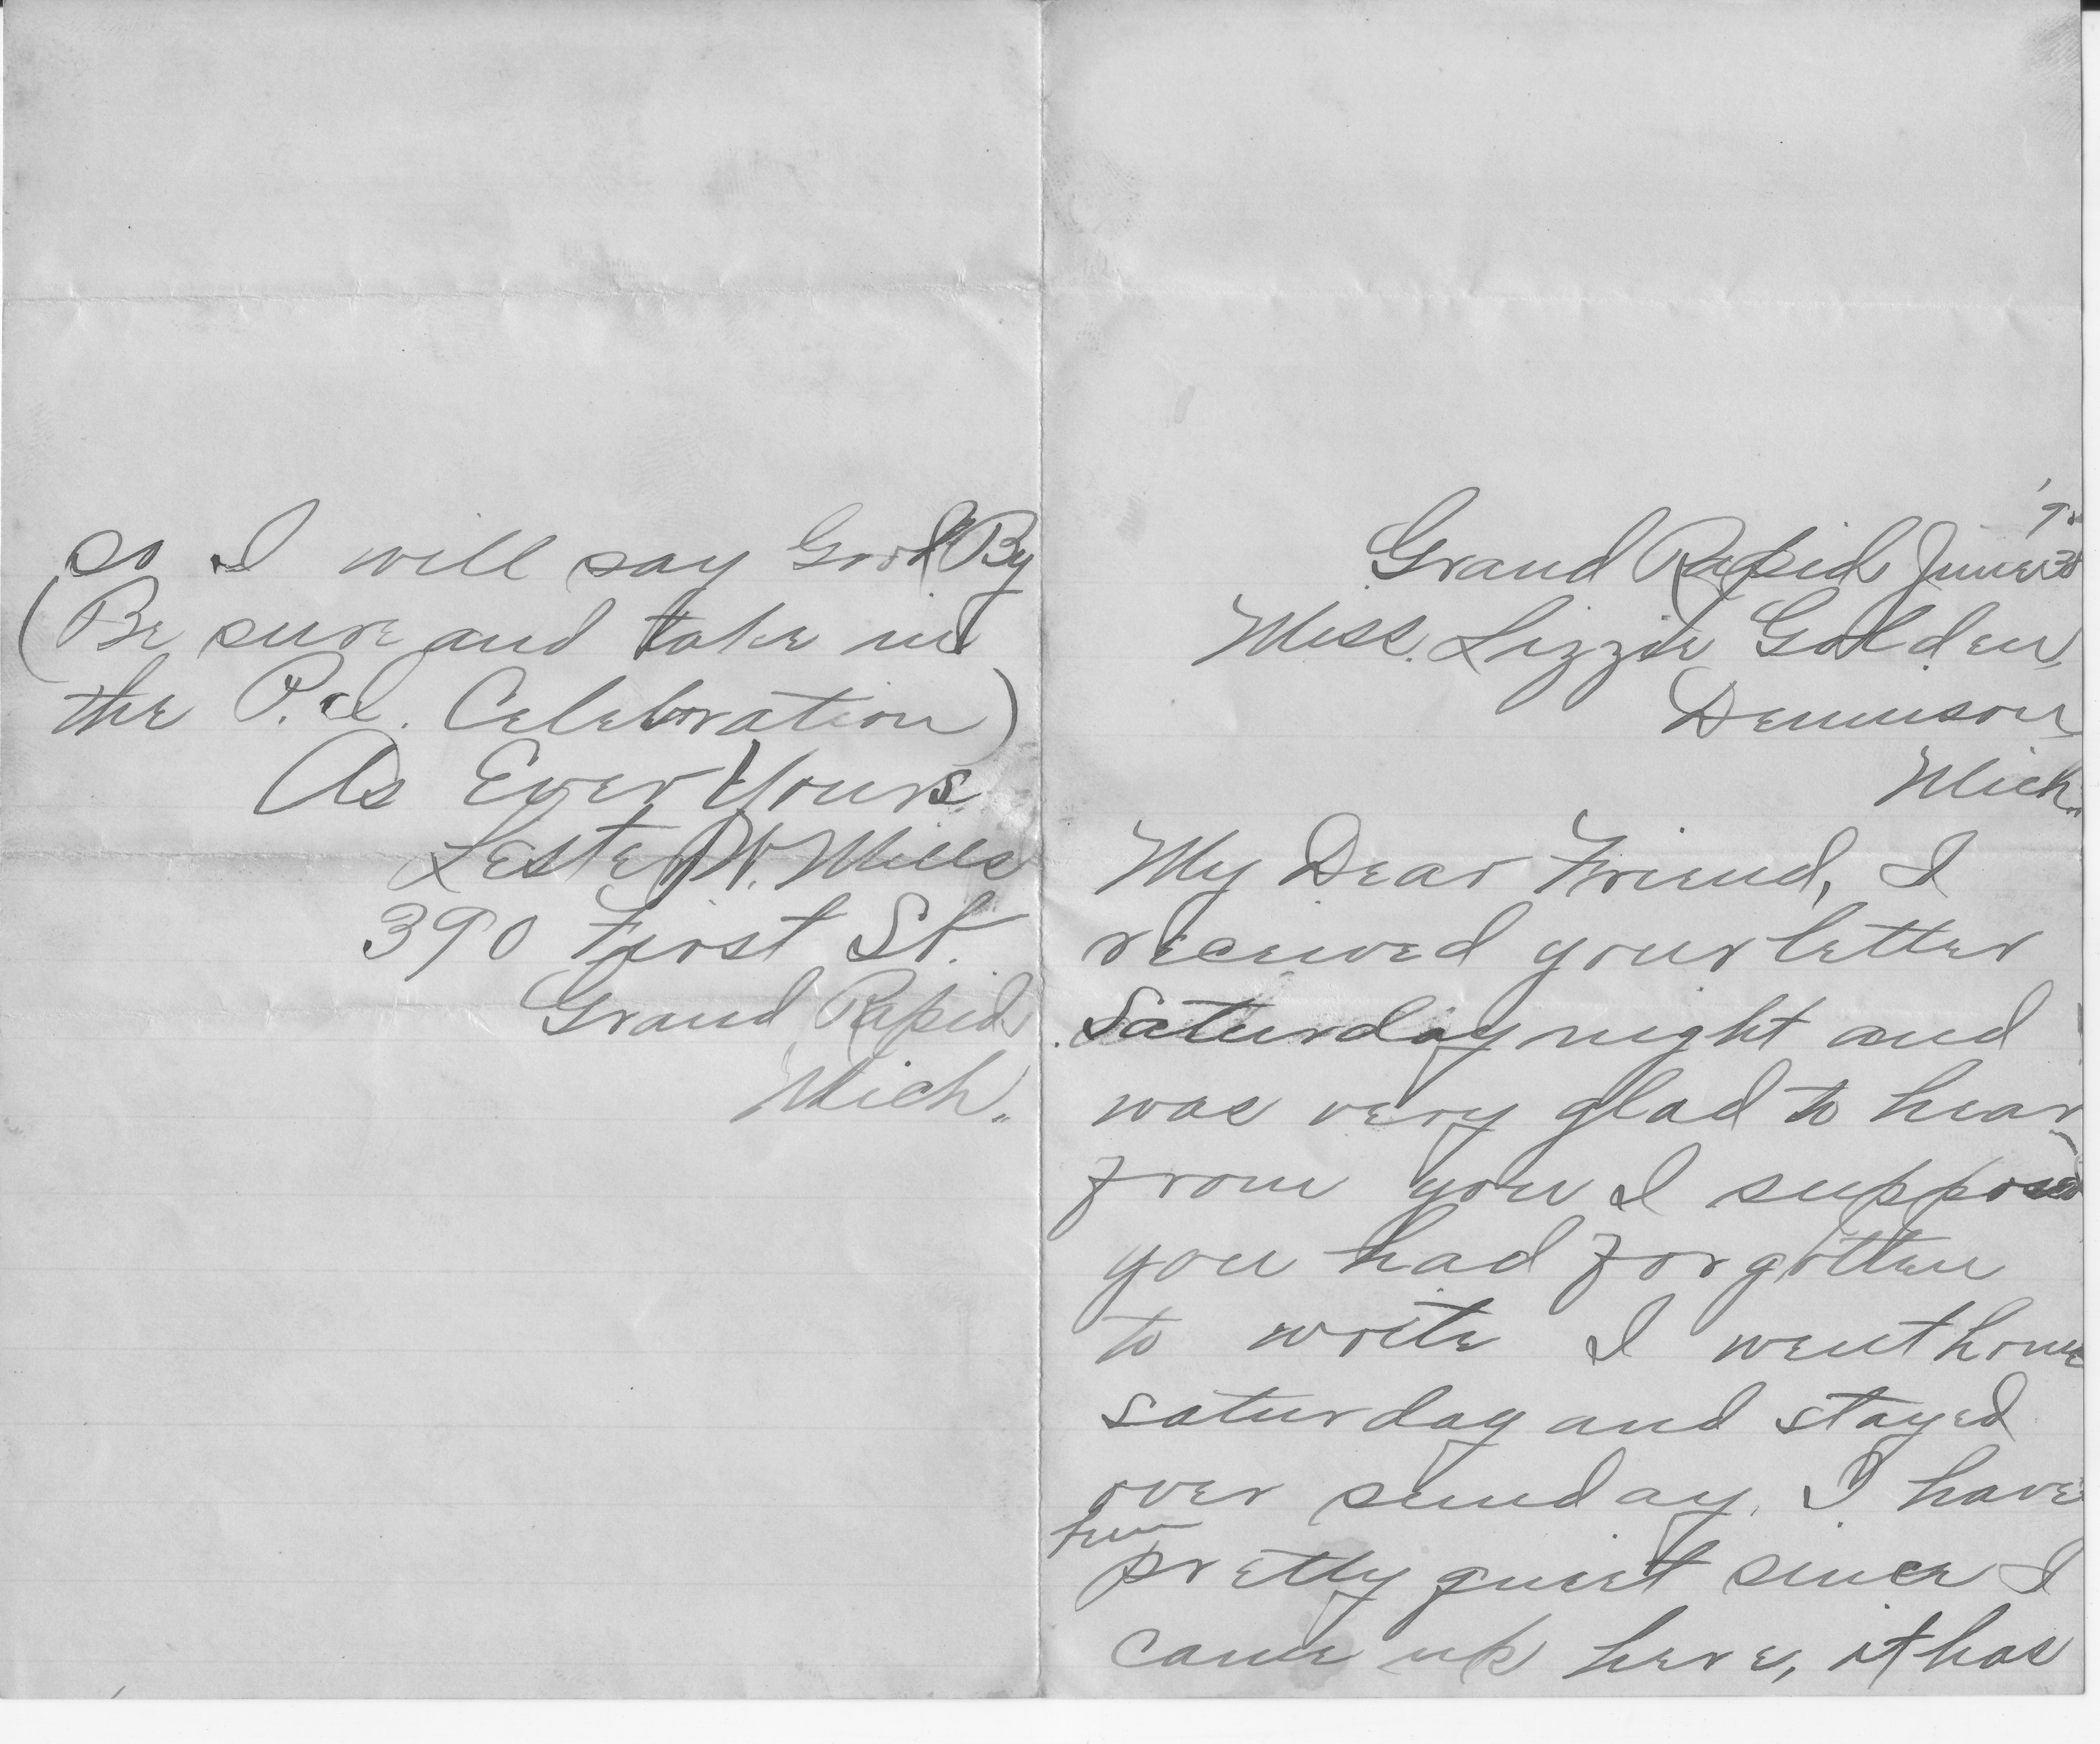 so I will say Good By
(Be sure and take in
the P.d. Celebration)
As Ever Yours
Lester W. Mills
390 First St.
Grand Rapid
Mich.
Grand Rapid June
Miss. Lizzie Golden,
Dennison,
Mich.
My Dear Friend, I
received your letter
Saturday night and
was very glad to hear
from you I supposed
you had forgotten
to write I went home
saturday and stayed
over sunday, I have
pretty quiet since I
came up here, it has